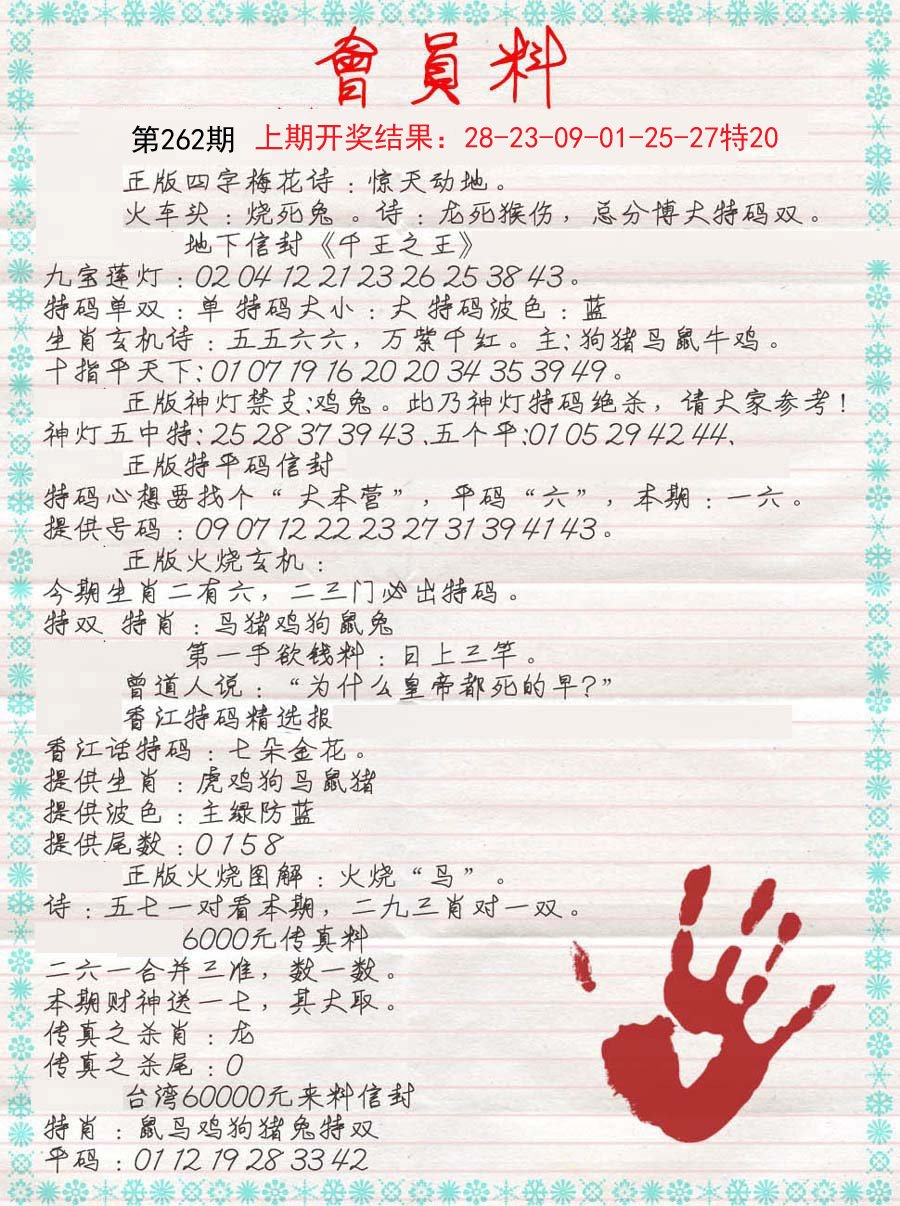 會員料
第262期 上期开奖结果：28-23-09-01-25-27特20
正版四字梅花诗：惊天动地。
火车头：烧死兔。诗：龙死猴伤，总分博大特码双。
地下信封《千王之王》
九宝莲灯：02 04 12 21 23 26 25 38 43。
特码单双：单 特码大小：大 特码波色：蓝
生肖玄机诗：五五六六，万紫千红。主：狗猪马鼠牛鸡。
十指平天下：01 07 19 16 20 20 34 35 39 49。
正版神灯禁支：鸡兔。此乃神灯特码绝杀，请大家参考！
神灯五中特：25 28 37 39 43、五个平：01 05 29 42 44、
正版特平码信封
特码心想要找个“大本营”，平码“六”，本期：一六。
提供号码：09 07 12 22 23 27 31 39 41 43。
正版火烧玄机：
今期生肖二有六，二三门必出特码。
特双 特肖：马猪鸡狗鼠兔
第一手欲钱料：日上三竿。
曾道人说：“为什么皇帝都死的早？”
香江特码精选报
香江话特码：七朵金花。
提供生肖：虎鸡狗马鼠猪
提供波色：主绿防蓝
提供尾数：0 1 5 8
正版火烧图解：火烧“鸟”。
诗：五七一对看本期，二九三肖对一双。
6000元传真料
二六一合并三准，数一数。
本期财神送一七，其大取。
传真之杀肖：龙
传真之杀尾：0
台湾60000元来料信封
特肖：鼠马鸡狗猪兔特双
平码：01 12 19 28 33 42